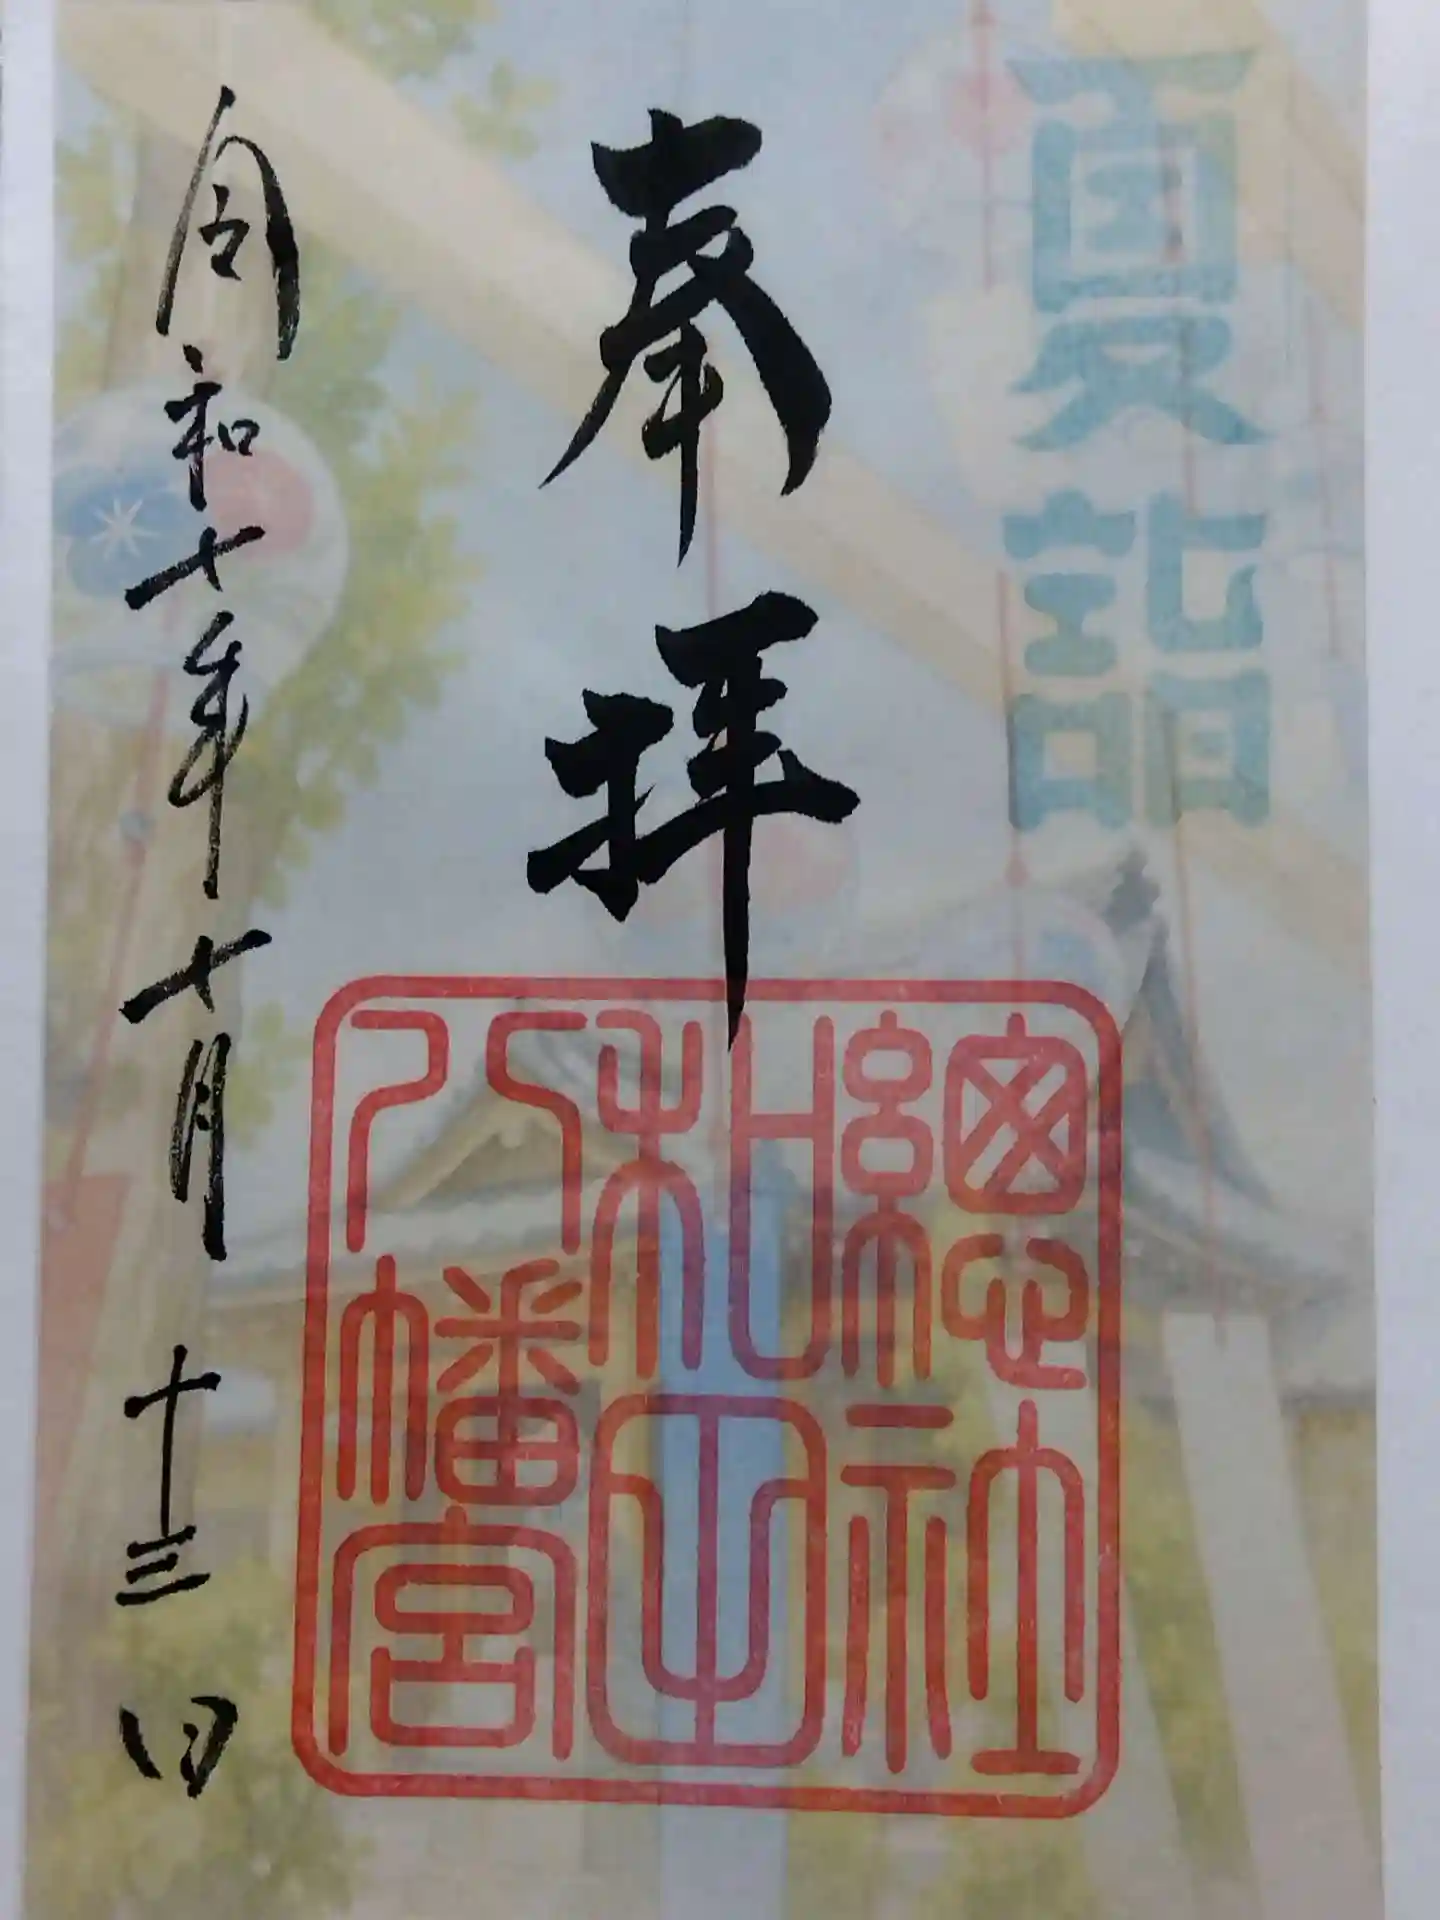 夏詣
奉拝
總社
札中
八幡宮
令和七年七月十三日